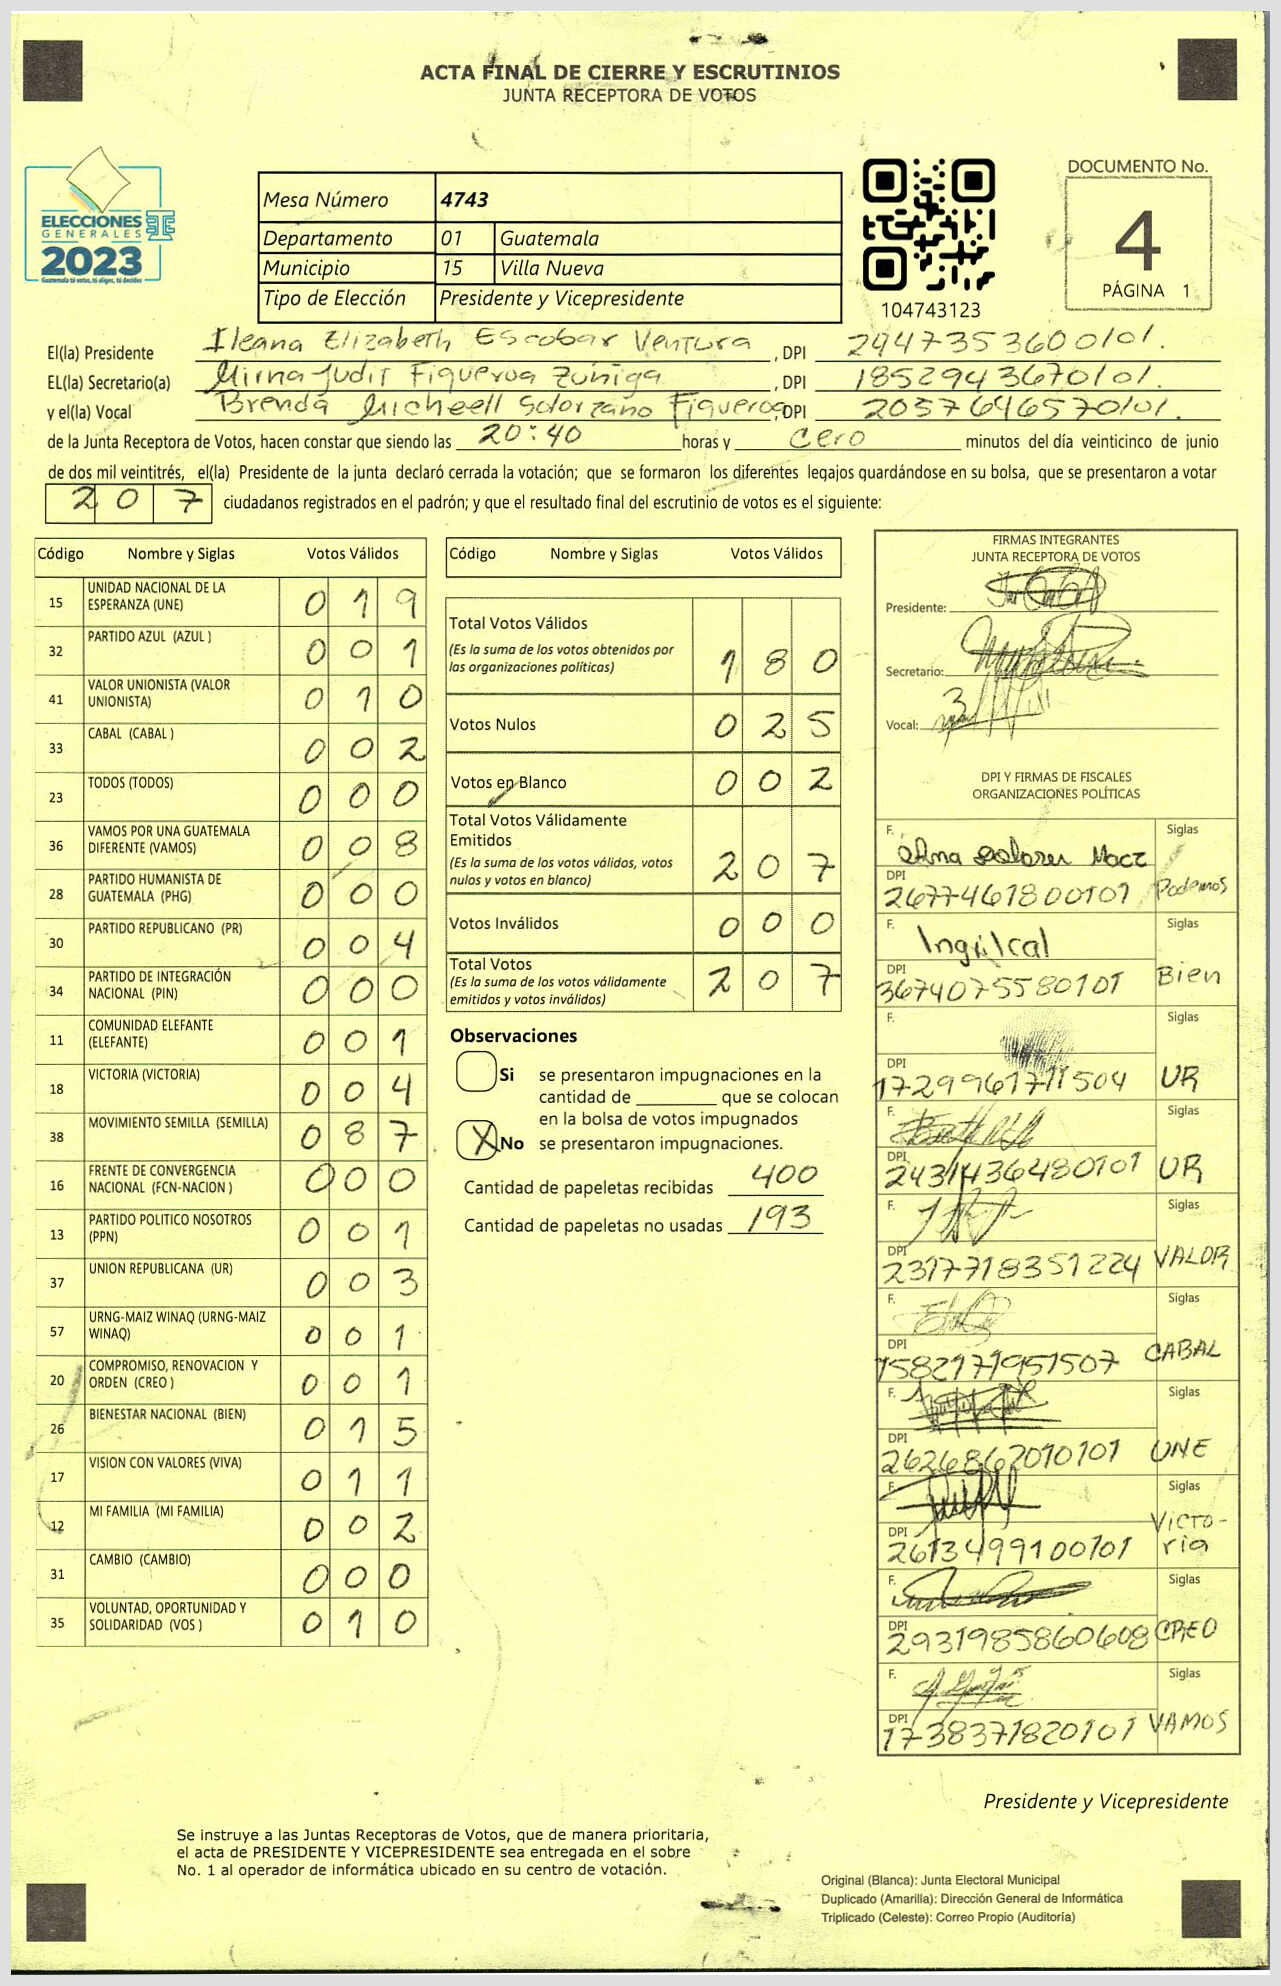 ACTA FINAL DE CIERRE Y ESCRUTINIOS
JUNTA RECEPTORA DE VOTOS
ELECCIONES
GENERALES
2023
Guatemala tú votas, tú eliges, tú decides
Mesa Número 4743
Departamento 01 Guatemala
Municipio 15 Villa Nueva
Tipo de Elección Presidente y Vicepresidente
104743123
DOCUMENTO No.
4
PÁGINA 1
El(la) Presidente Ileana Elizabeth Escobar Ventura, DPI 2447353600101.
EL(la) Secretario(a) Mirna Judit Figueroa Zúñiga, DPI 1852943670101.
y el(la) Vocal Brenda Micheell Solorzano Figueroa, DPI 2057646570101.
de la Junta Receptora de Votos, hacen constar que siendo las 20:40 horas y cero minutos del día veinticinco de junio
de dos mil veintitrés, el(la) Presidente de la junta declaró cerrada la votación; que se formaron los diferentes legajos guardándose en su bolsa, que se presentaron a votar
207 ciudadanos registrados en el padrón; y que el resultado final del escrutinio de votos es el siguiente:
Código Nombre y Siglas Votos Válidos
15 UNIDAD NACIONAL DE LA ESPERANZA (UNE) 019
32 PARTIDO AZUL (AZUL ) 001
41 VALOR UNIONISTA (VALOR UNIONISTA) 010
33 CABAL (CABAL ) 002
23 TODOS (TODOS) 000
36 VAMOS POR UNA GUATEMALA DIFERENTE (VAMOS) 008
28 PARTIDO HUMANISTA DE GUATEMALA (PHG) 000
30 PARTIDO REPUBLICANO (PR) 004
34 PARTIDO DE INTEGRACIÓN NACIONAL (PIN) 000
11 COMUNIDAD ELEFANTE (ELEFANTE) 001
18 VICTORIA (VICTORIA) 004
38 MOVIMIENTO SEMILLA (SEMILLA) 087
16 FRENTE DE CONVERGENCIA NACIONAL (FCN-NACION ) 000
13 PARTIDO POLITICO NOSOTROS (PPN) 001
37 UNION REPUBLICANA (UR) 003
57 URNG-MAIZ WINAQ (URNG-MAIZ WINAQ) 001
20 COMPROMISO, RENOVACION Y ORDEN (CREO ) 001
26 BIENESTAR NACIONAL (BIEN) 015
17 VISION CON VALORES (VIVA) 011
12 MI FAMILIA (MI FAMILIA) 002
31 CAMBIO (CAMBIO) 000
35 VOLUNTAD, OPORTUNIDAD Y SOLIDARIDAD (VOS ) 010
Código Nombre y Siglas Votos Válidos
Total Votos Válidos
(Es la suma de los votos obtenidos por
las organizaciones políticas) 180
Votos Nulos 025
Votos en Blanco 002
Total Votos Válidamente
Emitidos
(Es la suma de los votos válidos, votos
nulos y votos en blanco) 207
Votos Inválidos 000
Total Votos
(Es la suma de los votos válidamente
emitidos y votos inválidos) 207
Observaciones
Si se presentaron impugnaciones en la
cantidad de ________ que se colocan
en la bolsa de votos impugnados
X No se presentaron impugnaciones.
Cantidad de papeletas recibidas 400
Cantidad de papeletas no usadas 193
FIRMAS INTEGRANTES
JUNTA RECEPTORA DE VOTOS
Presidente:
Secretario:
Vocal:
DPI Y FIRMAS DE FISCALES
ORGANIZACIONES POLÍTICAS
F. Siglas
DPI 2677461800101 Podemos
F. Siglas
DPI 3674075580101 Bien
F. Siglas
DPI 1729961711504 UR
F. Siglas
DPI 2431436480101 UR
F. Siglas
DPI 2317718351224 VALOR
F. Siglas
DPI 1582171951507 CABAL
F. Siglas
DPI 2626862010101 UNE
F. Siglas
DPI 2613499100101 Victo-
ria
F. Siglas
DPI 2931985860608 CREO
F. Siglas
DPI 1738371820101 VAMOS
Presidente y Vicepresidente
Se instruye a las Juntas Receptoras de Votos, que de manera prioritaria,
el acta de PRESIDENTE Y VICEPRESIDENTE sea entregada en el sobre
No. 1 al operador de informática ubicado en su centro de votación.
Original (Blanca): Junta Electoral Municipal
Duplicado (Amarilla): Dirección General de Informática
Triplicado (Celeste): Correo Propio (Auditoría)